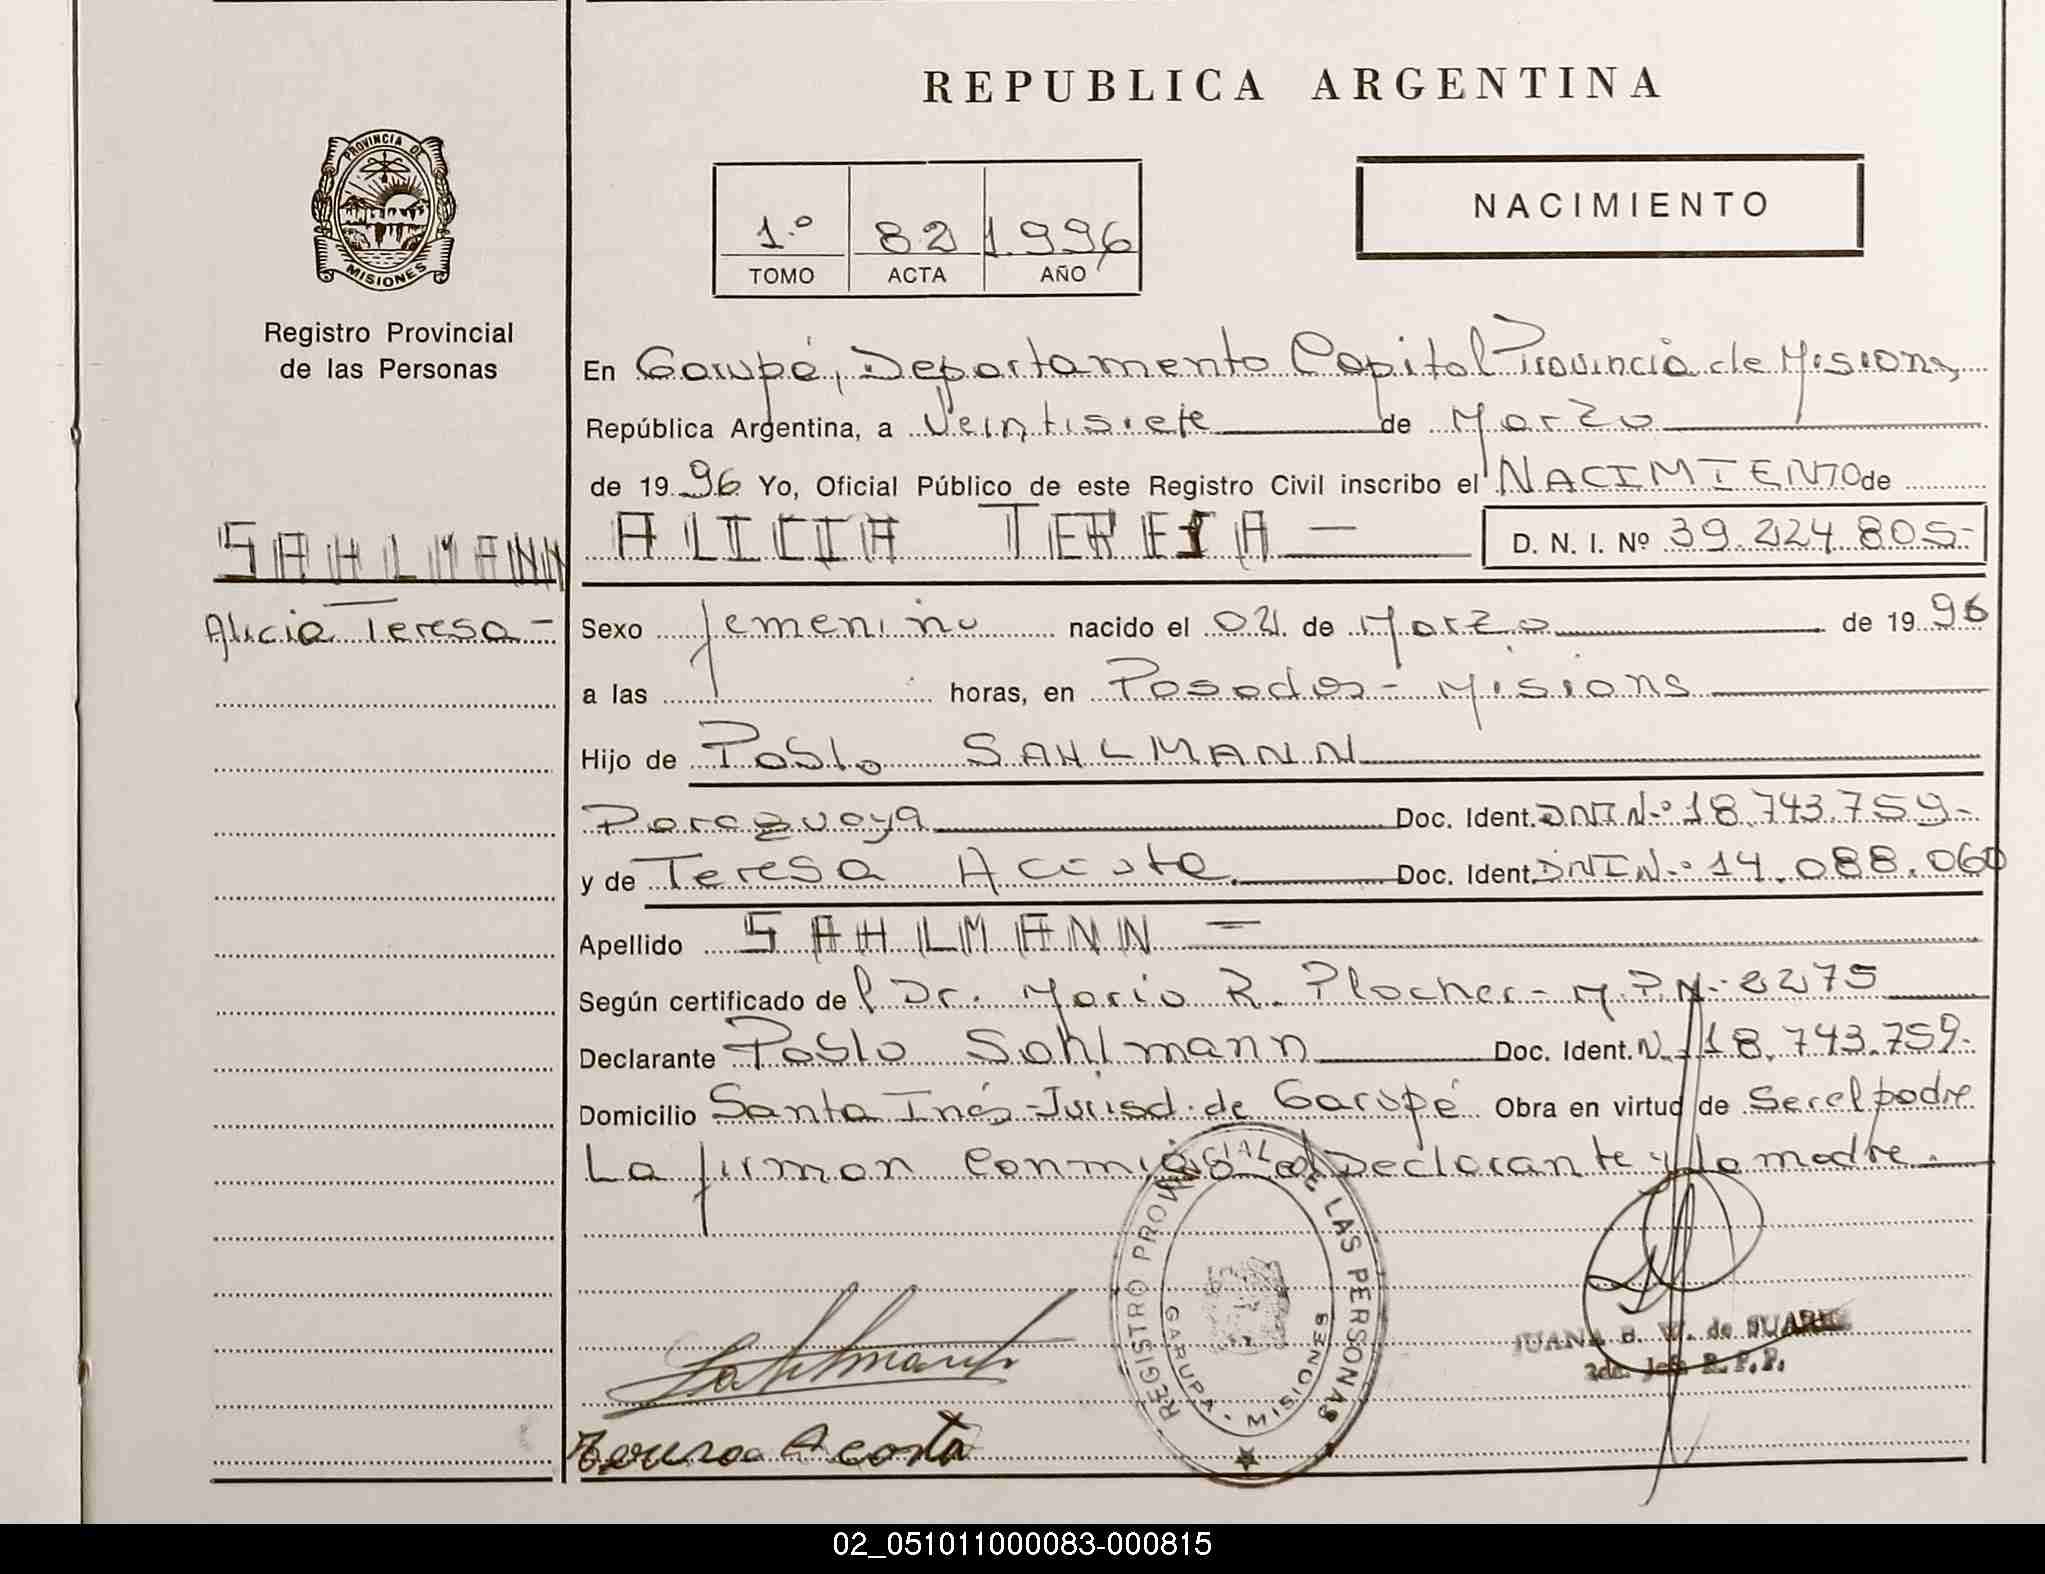 REPUBLICA ARGENTINA
PROVINCIA DE
MISIONES
Registro Provincial
de las Personas
1.º 82 1.996
TOMO ACTA AÑO
NACIMIENTO
En Garupá, Departamento Capital Provincia de Misions,
República Argentina, a Veintisiete de Marzo
de 19 96 Yo, Oficial Público de este Registro Civil inscribo el NACIMIENTO de
SAHLMANN
ALICIA TERESA — D. N. I. Nº 39.224.805-
Alicia Teresa -
Sexo femenino nacido el 02 de Marzo de 19 96
a las horas, en Posadas - Misions
Hijo de Pablo SAHLMANN
Paraguaya Doc. Ident. DNI N.º 18.743.759-
y de Teresa Acosta Doc. Ident. DNI N.º 14.088.060
Apellido SAHLMANN —
Según certificado del Dr. Mario R. Plocher - M.P.N.- 2275
Declarante Pablo Sahlmann Doc. Ident. N.- 18.743.759-
Domicilio Santa Inés - Jurisd. de Garupá Obra en virtud de Ser el padre
La firman conmigo el Declarante y la madre.
REGISTRO PROVINCIAL DE LAS PERSONAS
GARUPA · MISIONES
Sahlmann
JUANA B. W. de SUAREZ
Teresa Acosta
02_051011000083-000815